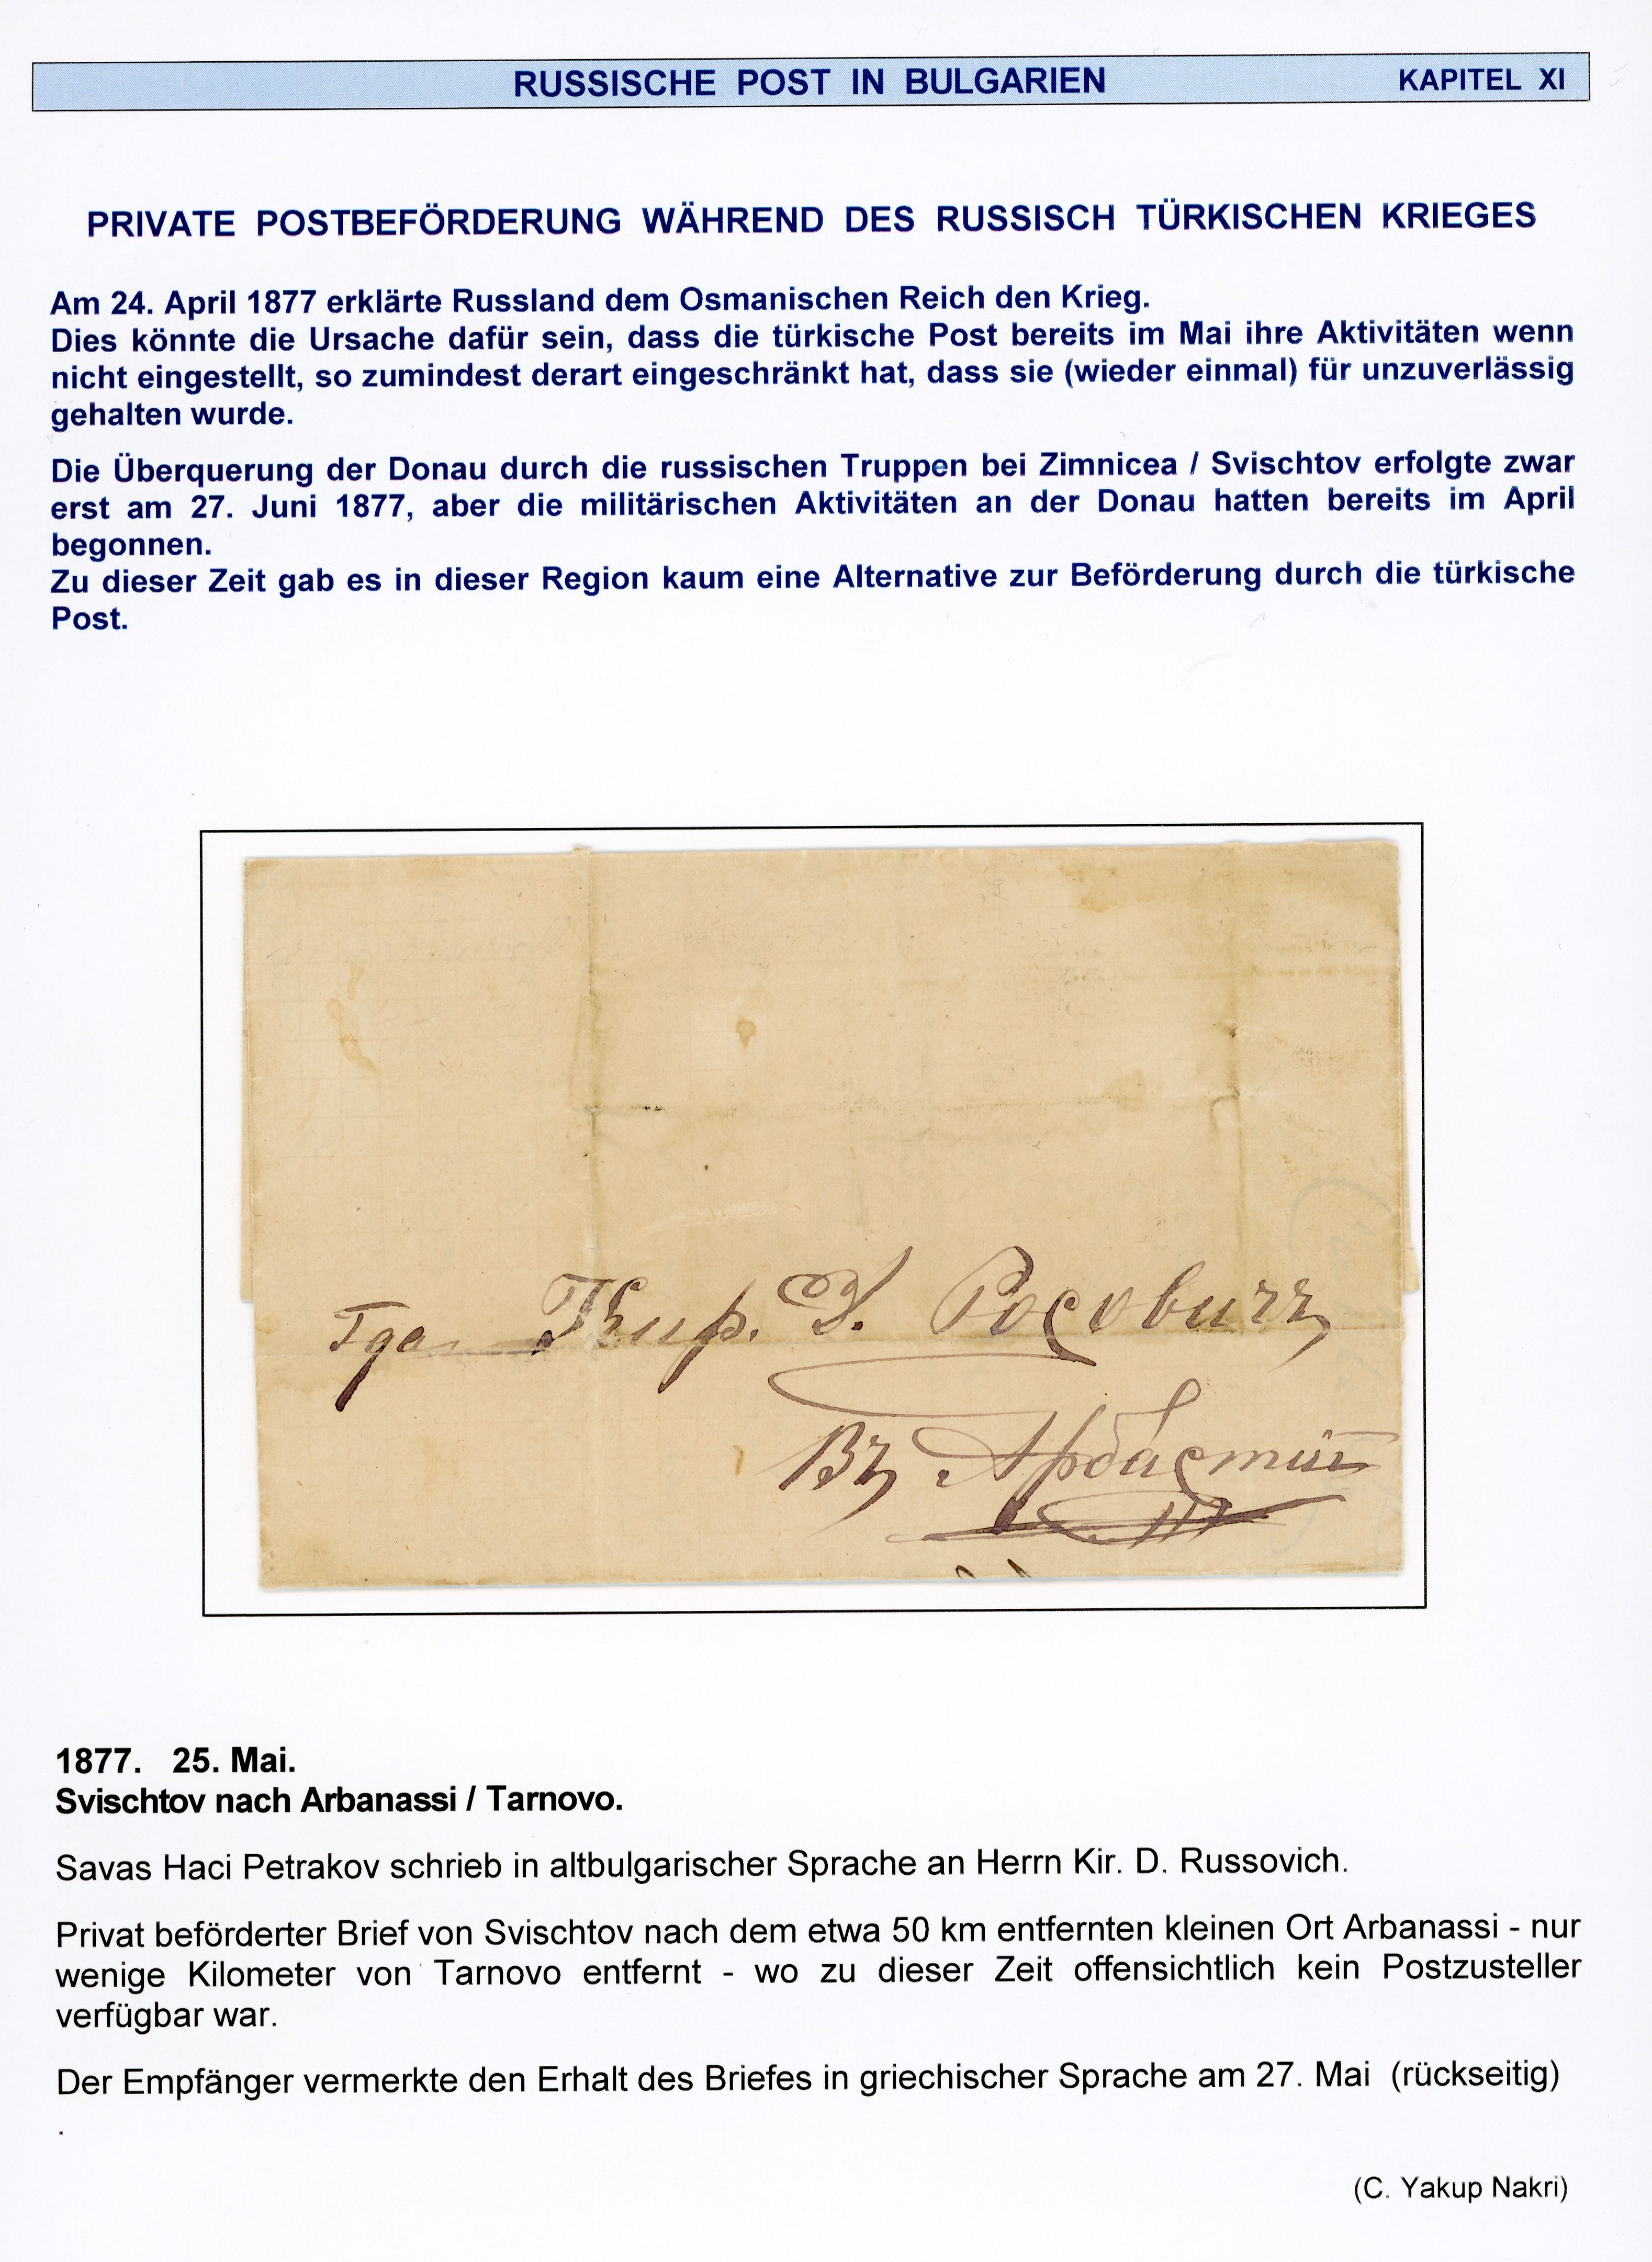 RUSSISCHE POST IN BULGARIEN KAPITEL XI
PRIVATE POSTBEFÖRDERUNG WÄHREND DES RUSSISCH TÜRKISCHEN KRIEGES
Am 24. April 1877 erklärte Russland dem Osmanischen Reich den Krieg.
Dies könnte die Ursache dafür sein, dass die türkische Post bereits im Mai ihre Aktivitäten wenn
nicht eingestellt, so zumindest derart eingeschränkt hat, dass sie (wieder einmal) für unzuverlässig
gehalten wurde.
Die Überquerung der Donau durch die russischen Truppen bei Zimnicea / Svischtov erfolgte zwar
erst am 27. Juni 1877, aber die militärischen Aktivitäten an der Donau hatten bereits im April
begonnen.
Zu dieser Zeit gab es in dieser Region kaum eine Alternative zur Beförderung durch die türkische
Post.
Кир. Д. Росовичъ
Въ
1877. 25. Mai.
Svischtov nach Arbanassi / Tarnovo.
Savas Haci Petrakov schrieb in altbulgarischer Sprache an Herrn Kir. D. Russovich.
Privat beförderter Brief von Svischtov nach dem etwa 50 km entfernten kleinen Ort Arbanassi - nur
wenige Kilometer von Tarnovo entfernt - wo zu dieser Zeit offensichtlich kein Postzusteller
verfügbar war.
Der Empfänger vermerkte den Erhalt des Briefes in griechischer Sprache am 27. Mai (rückseitig)
.
(C. Yakup Nakri)